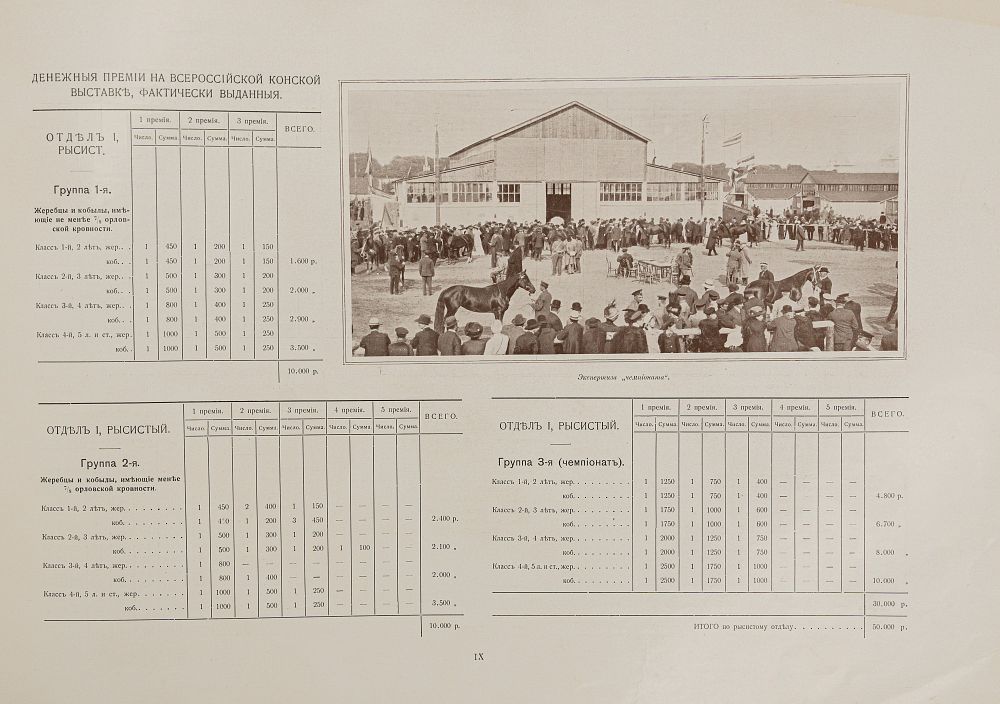 ДЕНЕЖНЫЯ ПРЕМІИ НА ВСЕРОССІЙСКОЙ КОНСКОЙ
ВЫСТАВКѢ, ФАКТИЧЕСКИ ВЫДАННЫЯ.
ОТДѢЛЪ I,
РЫСИСТ.
1 премія. 2 премія. 3 премія. ВСЕГО.
Число. Сумма. Число. Сумма. Число. Сумма.
Группа 1-я.
Жеребцы и кобылы, имѣ-
ющіе не менѣе 7/8 орлов-
ской кровности.
Классъ 1-й, 2 лѣтъ, жер. . . 1 450 1 200 1 150
коб. . . 1 450 1 200 1 150 1.600 р.
Классъ 2-й, 3 лѣтъ, жер. . . 1 500 1 300 1 200
коб. . . 1 500 1 300 1 200 2.000 „
Классъ 3-й, 4 лѣтъ, жер. . . 1 800 1 400 1 250
коб. . . 1 800 1 400 1 250 2.900 „
Классъ 4-й, 5 л. и ст., жер. 1 1000 1 500 1 250
коб. . 1 1000 1 500 1 250 3.500 „
10.000 р.
Экспертиза „чемпіоната“.
ОТДѢЛЪ I, РЫСИСТЫЙ.
1 премія. 2 премія. 3 премія. 4 премія. 5 премія. ВСЕГО.
Число. Сумма. Число. Сумма. Число. Сумма. Число. Сумма. Число. Сумма.
Группа 2-я.
Жеребцы и кобылы, имѣющіе менѣе
7/8 орловской кровности.
Классъ 1-й, 2 лѣтъ, жер. . . . . . . . 1 450 2 400 1 150 — — — —
коб. . . . . . . . 1 1 200 3 450 — — — — 2.400 р.
Классъ 2-й, 3 лѣтъ, жер. . . . . . . . 1 500 1 300 1 200 — — — —
коб. . . . . . . . 1 500 1 300 1 200 1 100 — — 2.100 „
Классъ 3-й, 4 лѣтъ, жер. . . . . . . . 1 800 — — — — — — — —
коб. . . . . . . . 1 800 1 400 — — — — — — 2.000 „
Классъ 4-й, 5 л. и ст., жер. . . . . . . 1 1000 1 500 1 250 — — — —
коб. . . . . . . . 1 1000 1 500 1 250 — — — — 3.500 „
10.000 р.
ОТДѢЛЪ I, РЫСИСТЫЙ.
1 премія. 2 премія. 3 премія. 4 премія. 5 премія. ВСЕГО.
Число. Сумма. Число. Сумма. Число. Сумма. Число. Сумма. Число. Сумма.
Группа 3-я (чемпіонатъ).
Классъ 1-й, 2 лѣтъ, жер. . . . . . . . 1 1250 1 750 1 400 — — — —
коб. . . . . . . . 1 1250 1 750 1 400 — — — — 4.800 р.
Классъ 2-й, 3 лѣтъ, жер. . . . . . . . 1 1750 1 1000 1 600 — — — —
коб. . . . . . . . 1 1750 1 1000 1 600 — — — — 6.700 „
Классъ 3-й, 4 лѣтъ, жер. . . . . . . . 1 2000 1 1250 1 750 — — — —
коб. . . . . . . . 1 2000 1 1250 1 750 — — — — 8.000 „
Классъ 4-й, 5 л. и ст., жер. . . . . . . 1 2500 1 1750 1 1000 — — — —
коб. . . . . . . . 1 2500 1 1750 1 1000 — — — — 10.000 „
30.000 р.
ИТОГО по рысистому отдѣлу. . . . . . . . . 50.000 р.
IX